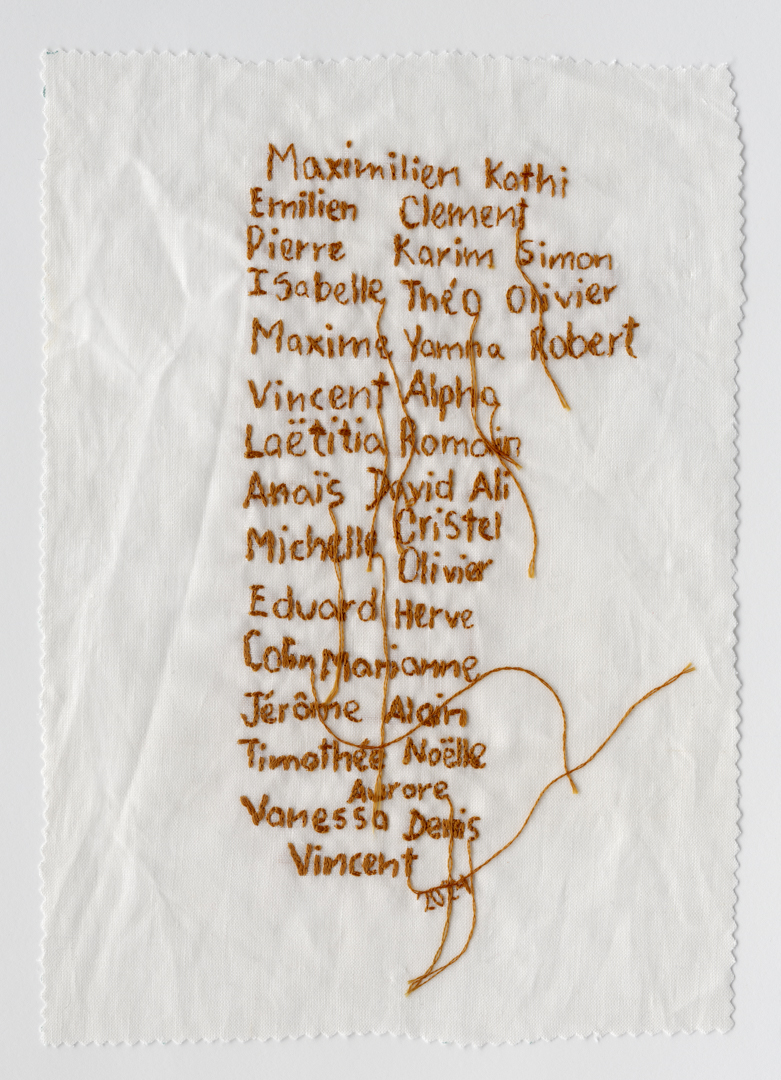 Maximilien Kathi
Emilien Clement
Pierre Karim Simon
ISabelle Théo Olivier
Maxime Yamna Robert
Vincent Alpha
Laëtitia Romain
Anaïs David Ali
Cristel
Michelle
Olivier
Eduard Herve
Colin Marianne
Jérôme Alain
Timothée Noëlle
Aurore
Vanessa Denis
Vincent